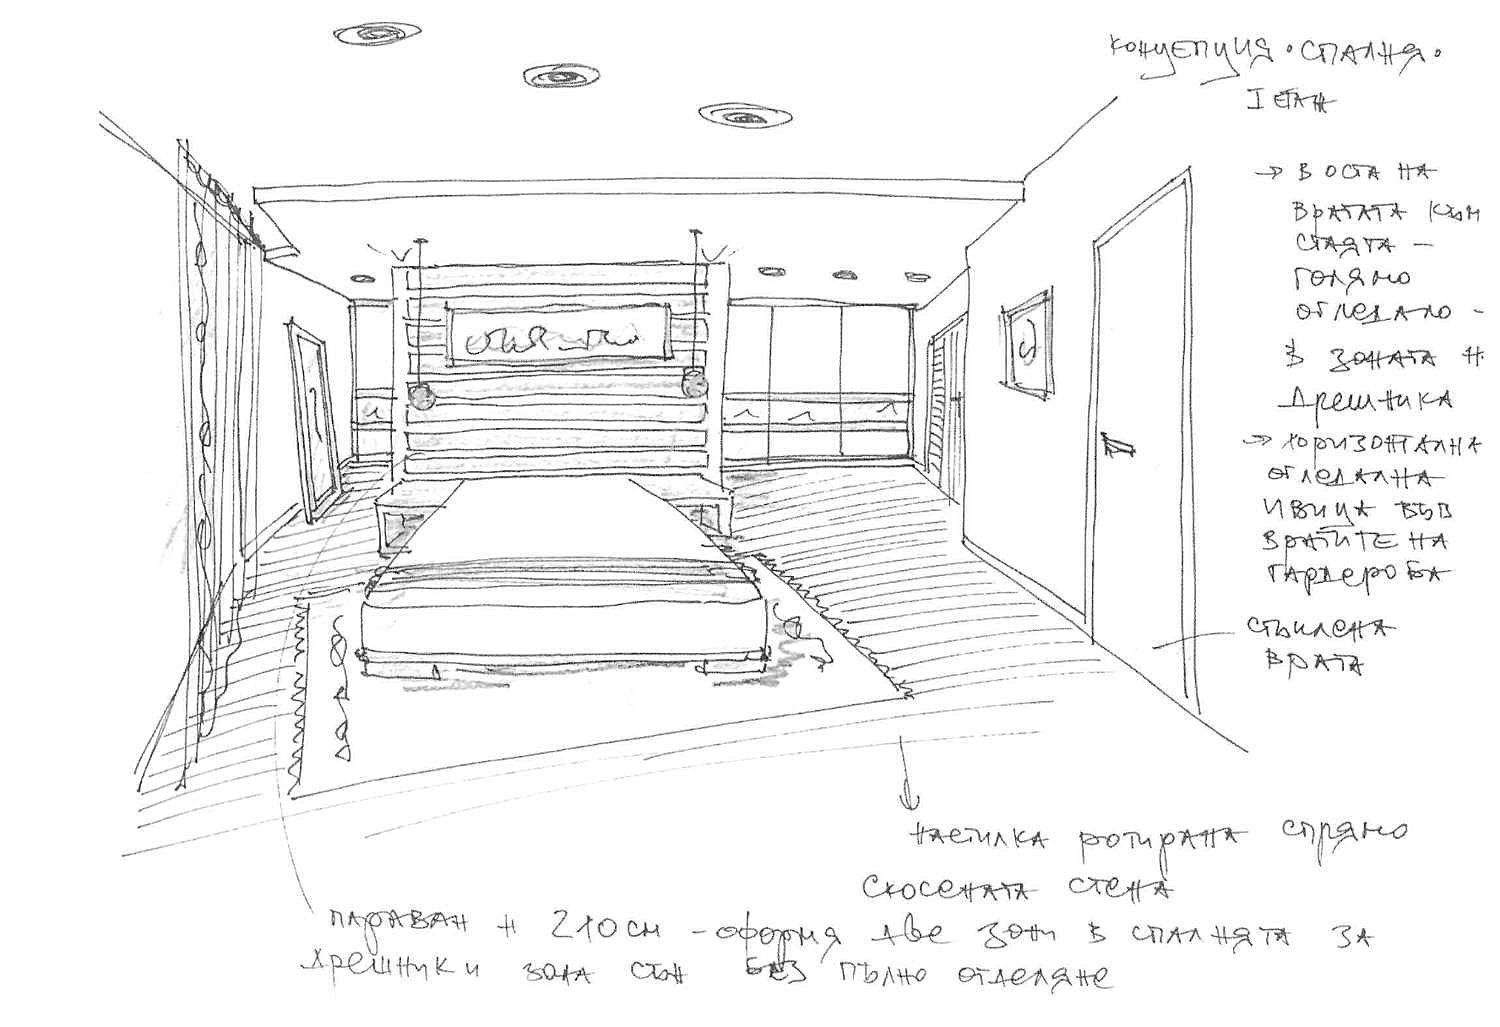 концепция · спалня ·
I етаж
→ в оста на
вратата към
стаята –
голямо
огледало –
в зоната н
дрешника
→ хоризонтална
огледална
ивица във
вратите на
гардероба
стъклена
врата
настилка ротирана спрямо
скосената стена
параван H 210 см – оформя две зони в спалнята за
дрешник и зона сън без пълно отделяне